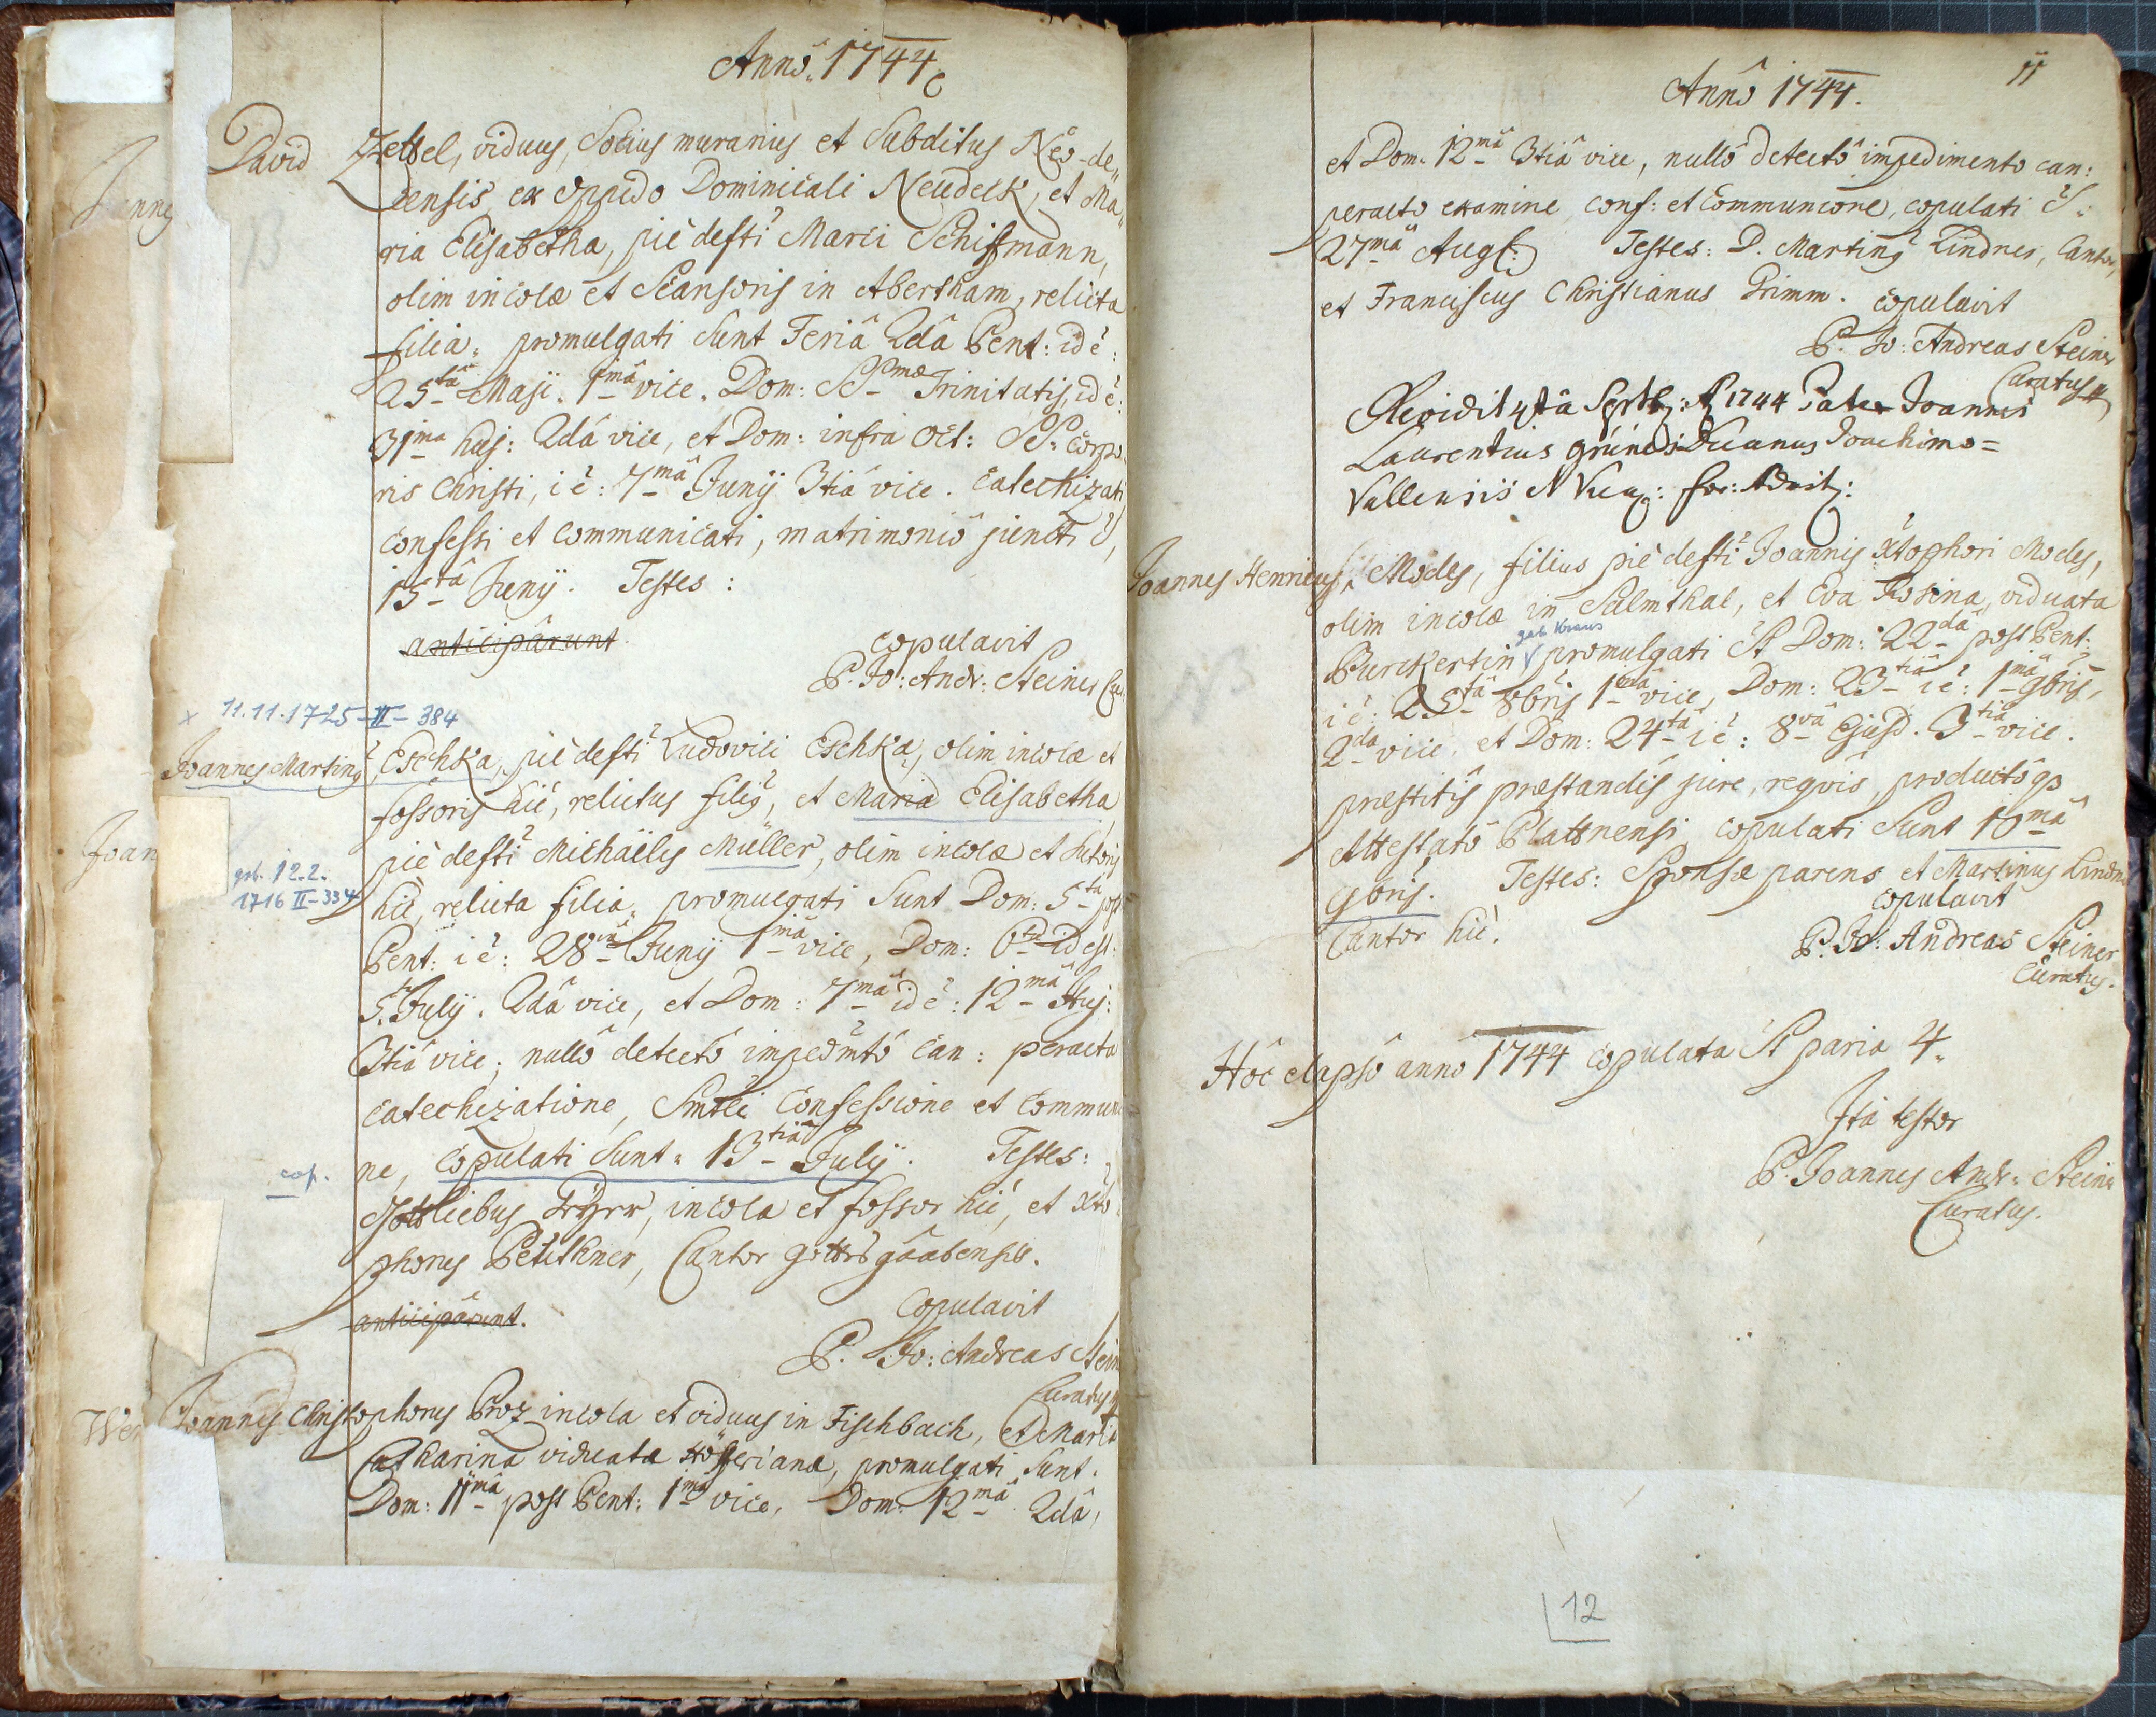 Anno. 1744
David Zettel, viduus, Socius muranius et Subditus Neo-de„
censis ex oppido Dominicali Neudeck, et Ma„
ria Elisabetha, piè defti Marci Schiffmann,
olim incolæ et Scansoris in Abertham, relicta
filia„ promulgati sunt Feriâ 2dâ Pent: id è:
25tâ Maji. 1mâ vice. Dom: SSmæ Trinitatis, id è:
31ma huj: 2dâ vice, et Dom: infra Oct: SS: Corpo„
ris Christi, i è: 7mâ Junij 3tiâ vice. Catechizati
confessi et communicati, matrimoniô juncti S,
15tâ Junij. Testes:
anticipârunt. copulavit
P. Jo: Andr: Steiner Cur.
x 11.11.1725-II-384
Joannes Martinus Eschka, piè defti Ludovici Eschka, olim incolæ et
fossoris hìc, relictus filius, et Maria Elisabetha
piè defti Michaëlis Müller, olim incolæ et Sutoris
geb. 12.2.
1716 II-334
hìc, relicta filia„ promulgati Sunt Dom: 5ta post
Pent: i è: 28vâ Junij 1mâ vice, Dom: 6tâ id est:
5. Julij. 2dâ vice, et Dom: 7mâ id è: 12mâ Huj:
3tiâ vice; nullô detectô impedmtô can: peracta
catechizatione, Smtli Confessione et commun
cop. ne, copulati Sunt„ 13tiâ Julij. Testes:
Gottliebus, incola et fossor hìc, et Xto
phorus Petithner, Cantor gottsgaabensis.
anticipârunt. Copulavit
P. Jo: Andreas Stein
Curatus
Joannes Christophorus Proz incola et viduus in Fischbach, et Maria
Catharina viduata, promulgati Sunt.
Dom: 11mâ post Pent: 1mâ vice, Dom: 12mâ 2dâ,
Annô 1744.
11
et Dom. 12mâ 3tiâ vice, nullô detectô impedimento can:
peracto examine conf: et Communione, copulati S:
27mâ Aug: Testes: D. Martinus Lindner, Cantor,
et Franciscus Christianus Grimm. copulavit
P. Jo: Andreas Steiner
Curatus
Revidit 4tâ 1744 Pater Joannes
Laurentius Decanus Joachimo=
Vallensis
Joannes Henricus, Modes, filius piè defti Joannis Xtophori Modes,
olim incolæ in Salmthal, et Eva Rosina, viduata
geb. Kraus
Burckertin, promulgati St Dom: 22dâ post Pent:
i è: 25tâ 8bris 1mâ vice, Dom: 23tiâ i è: 1mâ 9bris,
2dâ vice, et Dom: 24tâ i è: 8vâ Ejusd. 3tiâ vice.
præstitis præstandis jure, reqvis, productô qp
Attestatô Plattnensi copulati Sunt 10mâ
9bris. Testes: Sponsæ parens et Martinus Lindner
Cantor hìc. copulavit
P. Jo: Andreas Steiner
Curatus.
Hôc elapsô annô 1744 copulata St paria 4.
Ita testor
P. Joannes Andr: Steiner
Curatus.
12